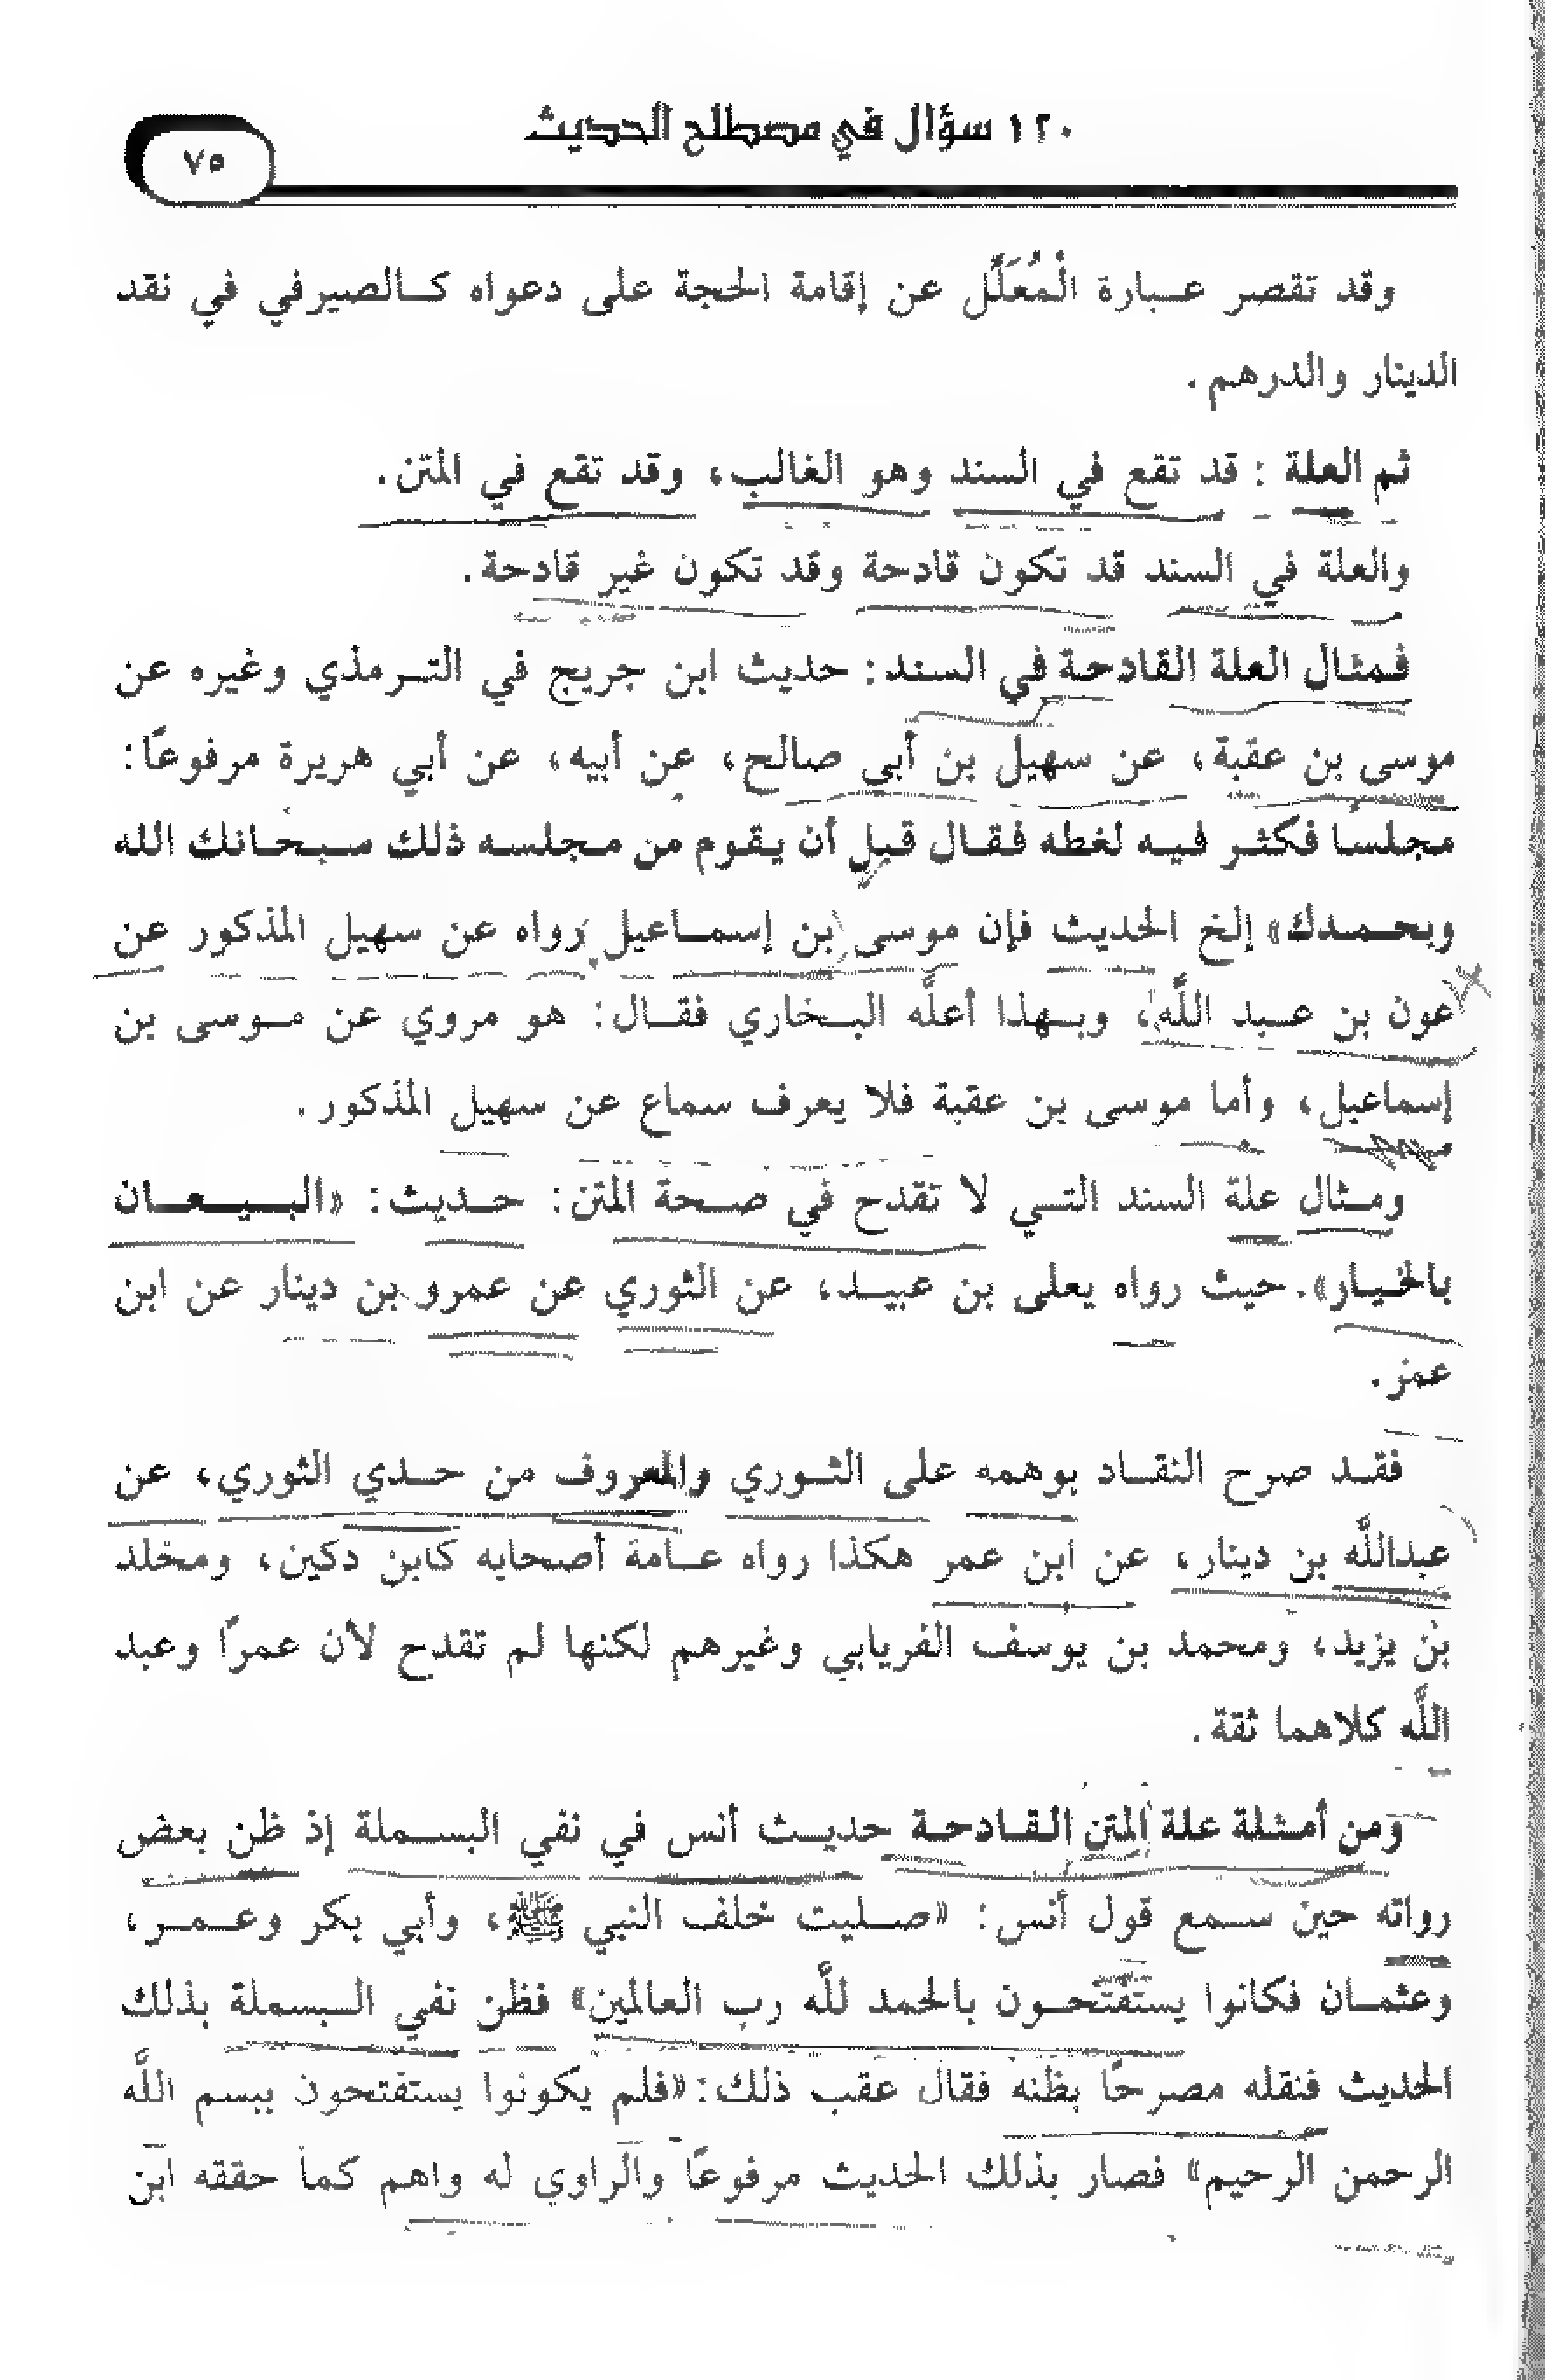 ١٢٠ سؤال في مصطلح الحديث
٧٥
وقد تقصر عبارة الْمُعَلِّل عن إقامة الحجة على دعواه كالصيرفي في نقد
الدينار والدرهم.
ثم العلة : قد تقع في السند وهو الغالب، وقد تقع في المتن.
والعلة في السند قد تكون قادحة وقد تكون غير قادحة.
فمثال العلة القادحة في السند: حديث ابن جريج في الترمذي وغيره عن
موسى بن عقبة، عن سهيل بن أبي صالح، عن أبيه، عن أبي هريرة مرفوعًا:
مجلسًا فكثر فيه لغطه فقال قبل أن يقوم من مجلسه ذلك سبحانك الله
وبحمدك» إلخ الحديث فإن موسى بن إسماعيل رواه عن سهيل المذكور عن
عون بن عبد اللَّه، وبهذا أعلَّه البخاري فقال: هو مروي عن موسى بن
إسماعيل، وأما موسى بن عقبة فلا يعرف سماع عن سهيل المذكور.
ومثال علة السند التي لا تقدح في صحة المتن: حديث: «البيعان
بالخيار». حيث رواه يعلى بن عبيد، عن الثوري عن عمرو بن دينار عن ابن
عمر.
فقد صرح النقاد بوهمه على الثوري والمعروف من حدي الثوري، عن
عبداللَّه بن دينار، عن ابن عمر هكذا رواه عامة أصحابه كابن دكين، ومخلد
بن يزيد، ومحمد بن يوسف الفريابي وغيرهم لكنها لم تقدح لأن عمرًا وعبد
اللَّه كلاهما ثقة.
ومن أمثلة علة المتن القادحة حديث أنس في نفي البسملة إذ ظن بعض
رواته حين سمع قول أنس: «صليت خلف النبي ﷺ، وأبي بكر وعمر،
وعثمان فكانوا يستفتحون بالحمد للَّه رب العالمين» فظن نفي البسملة بذلك
الحديث فنقله مصرحًا بظنه فقال عقب ذلك: «فلم يكونوا يستفتحون ببسم اللَّه
الرحمن الرحيم» فصار بذلك الحديث مرفوعًا والراوي له واهم كما حققه ابن